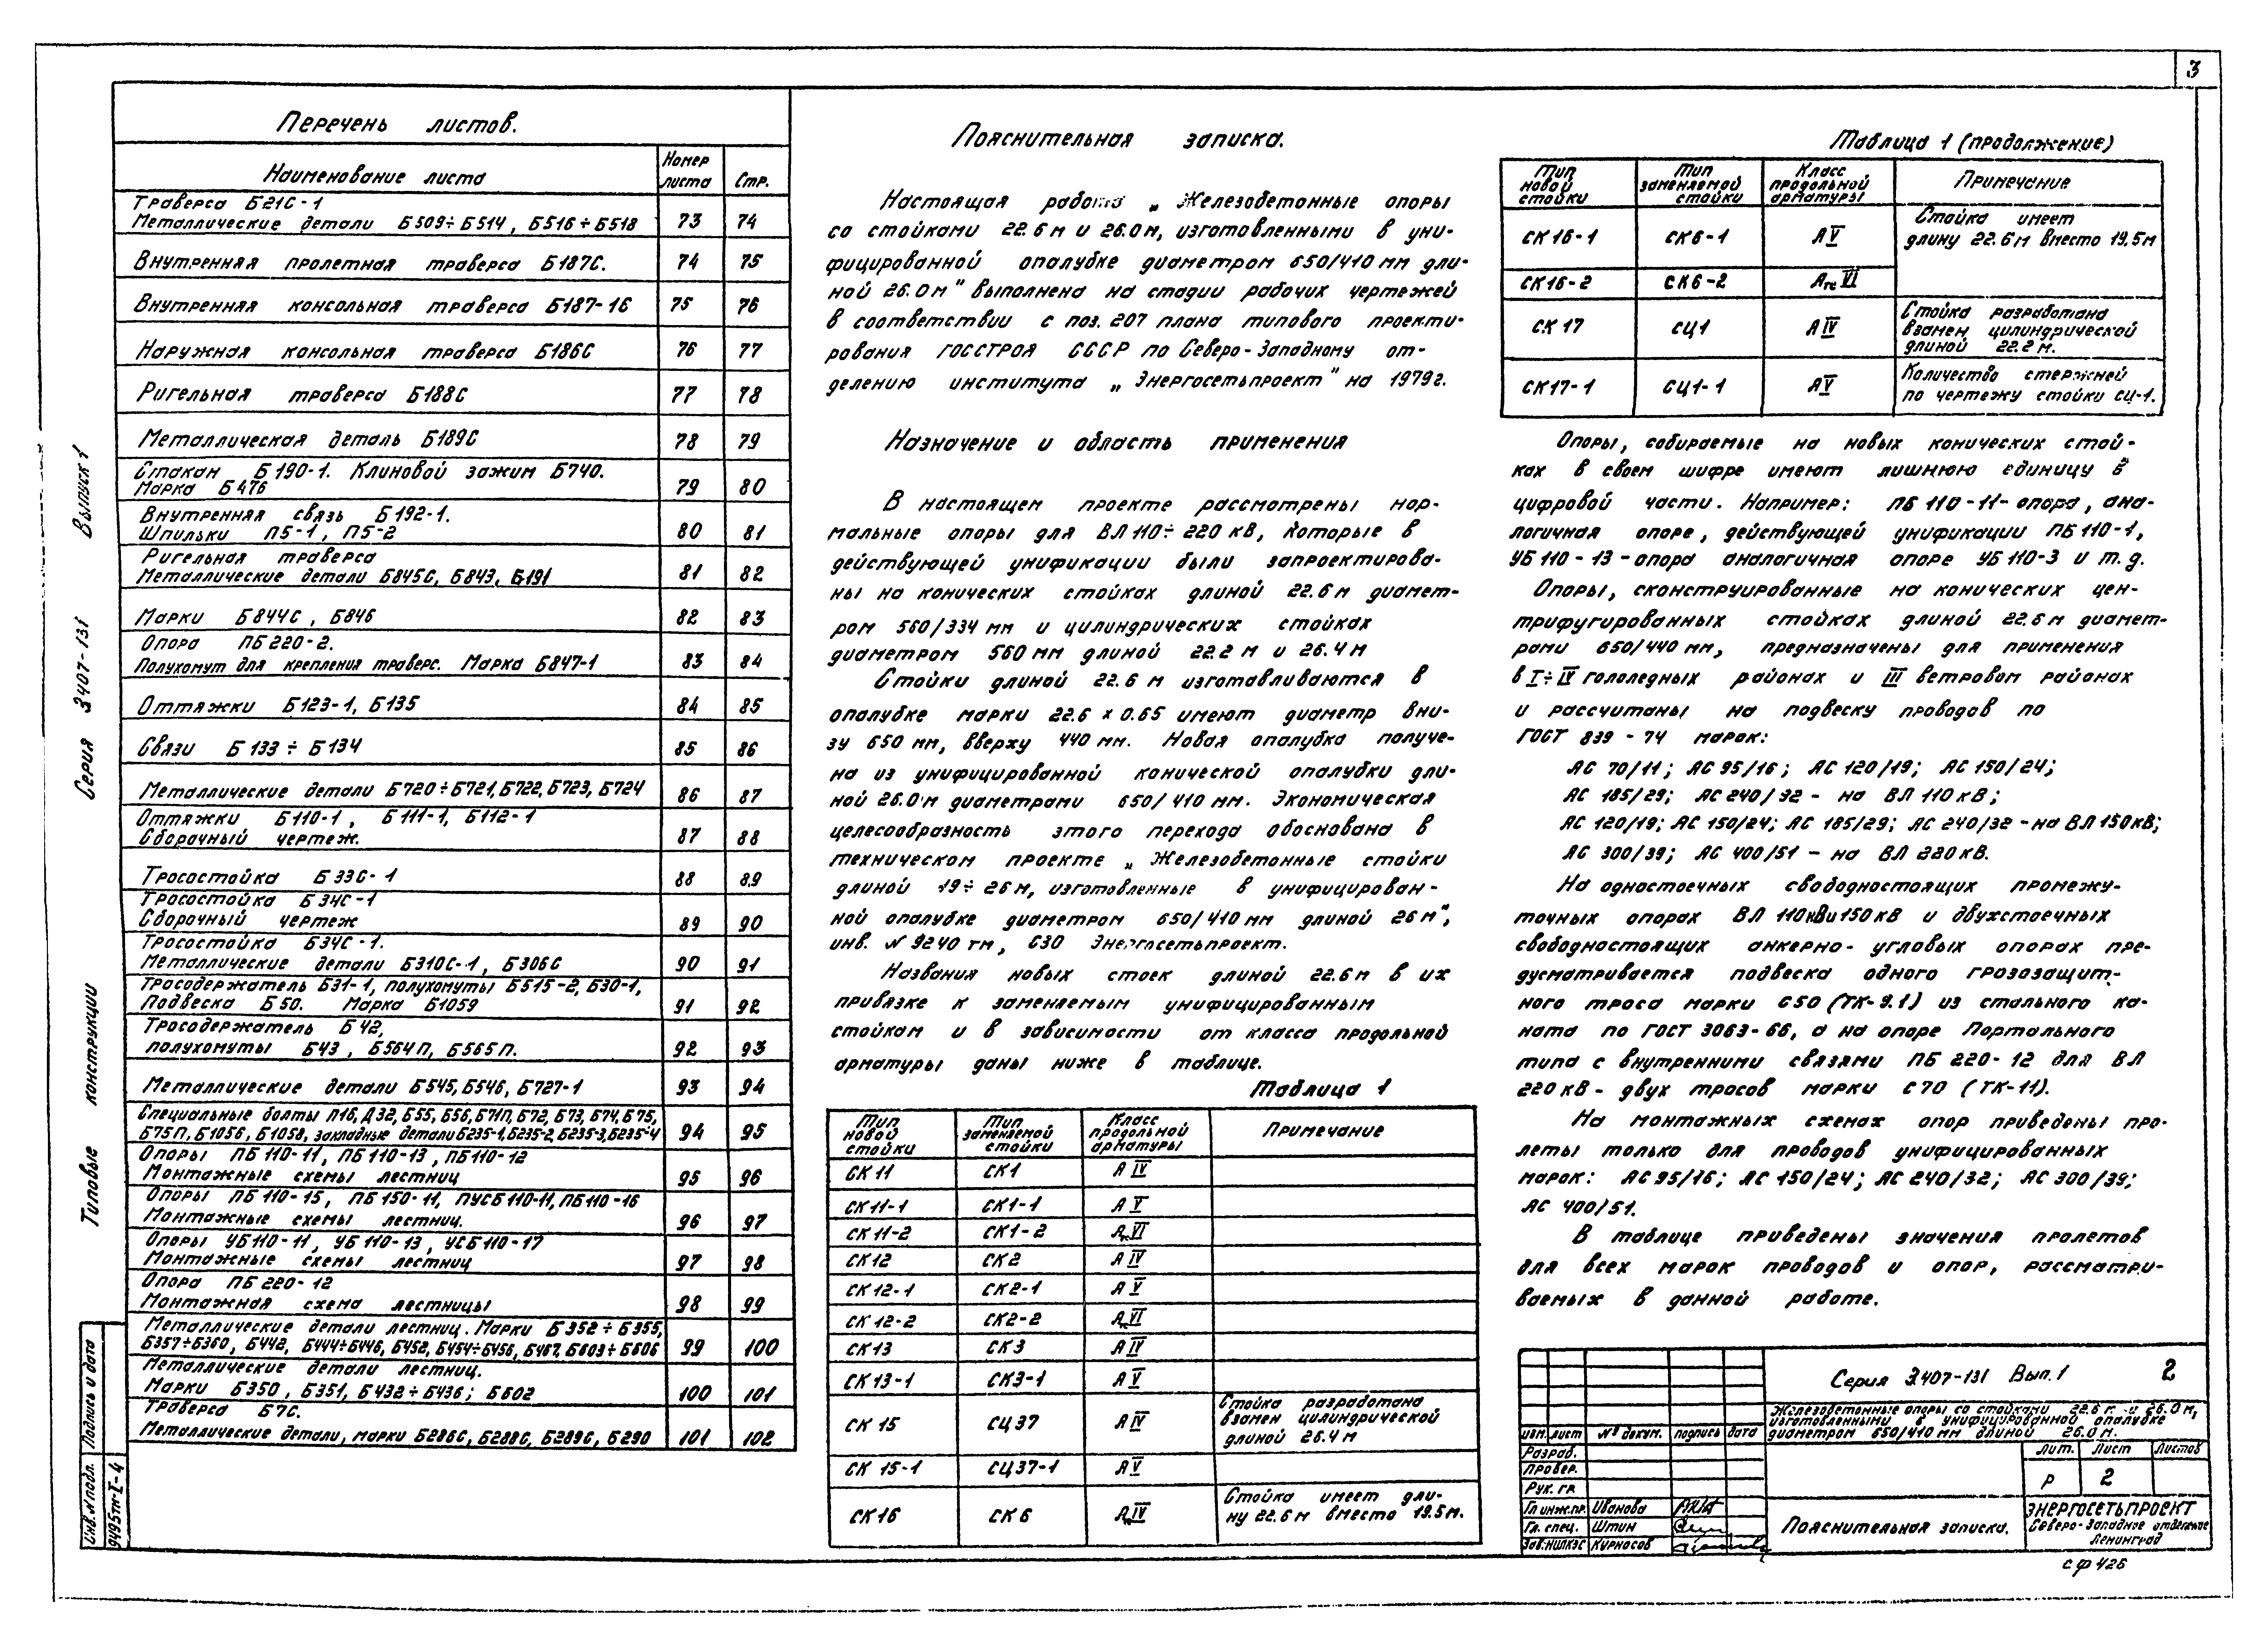 3
Перечень листов.
Наименование листа
Номер листа
Стр.
Траверса Б21С-1
Металлические детали Б509÷Б514, Б516÷Б518 73 74
Внутренняя пролетная траверса Б187С. 74 75
Внутренняя консольная траверса Б187-16 75 76
Наружная консольная траверса Б186С 76 77
Ригельная траверса Б188С 77 78
Металлическая деталь Б189С 78 79
Стакан Б190-1. Клиновой зажим Б740.
Марка Б476 79 80
Внутренняя связь Б192-1.
Шпильки П5-1, П5-2 80 81
Ригельная траверса
Металлические детали Б845С, Б843, Б191 81 82
Марки Б844С, Б846 82 83
Опора ПБ220-2.
Полухомут для крепления траверс. Марка Б847-1 83 84
Оттяжки Б123-1, Б135 84 85
Связи Б133 ÷ Б134 85 86
Металлические детали Б720÷Б721, Б722, Б723, Б724 86 87
Оттяжки Б110-1, Б111-1, Б112-1
Сборочный чертеж. 87 88
Тросостойка Б33С-1 88 89
Тросостойка Б34С-1
Сборочный чертеж 89 90
Тросостойка Б34С-1.
Металлические детали Б310С-1, Б306С 90 91
Тросодержатель Б31-1, полухомуты Б515-2, Б30-1,
Подвеска Б50. Марка Б1059 91 92
Тросодержатель Б42,
полухомуты Б43, Б564П, Б565П. 92 93
Металлические детали Б545, Б546, Б727-1 93 94
Специальные болты П16, Д32, Б55, Б56, Б71П, Б72, Б73, Б74, Б75,
Б75П, Б1056, Б1058, закладные детали Б235-1, Б235-2, Б235-3, Б235-4 94 95
Опоры ПБ110-11, ПБ110-13, ПБ110-12
Монтажные схемы лестниц 95 96
Опоры ПБ110-15, ПБ150-11, ПУСБ110-11, ПБ110-16
Монтажные схемы лестниц. 96 97
Опоры УБ110-11, УБ110-13, УСБ110-17
Монтажные схемы лестниц 97 98
Опора ПБ220-12
Монтажная схема лестницы 98 99
Металлические детали лестниц. Марки Б352÷Б355,
Б357÷Б360, Б442, Б444÷Б446, Б452, Б454÷Б456, Б467, Б603÷Б606 99 100
Металлические детали лестниц.
Марки Б350, Б351, Б432÷Б436; Б602 100 101
Траверса Б7С.
Металлические детали, марки Б286С, Б288С, Б289С, Б290 101 102
Типовые конструкции Серия 3.407-131 Выпуск 1
Инв. № подл. Подпись и дата
9495тм-I-4
Пояснительная записка.
Настоящая работа „Железобетонные опоры
со стойками 22.6м и 26.0м, изготовленными в уни-
фицированной опалубке диаметром 650/410 мм дли-
ной 26.0м" выполнена на стадии рабочих чертежей
в соответствии с поз. 207 плана типового проекти-
рования ГОССТРОЯ СССР по Северо-Западному от-
делению института „Энергосетьпроект" на 1979г.
Назначение и область применения
В настоящем проекте рассмотрены нор-
мальные опоры для ВЛ 110÷220 кВ, которые в
действующей унификации были запроектирова-
ны на конических стойках длиной 22.6 м диамет-
ром 560/334 мм и цилиндрических стойках
диаметром 560 мм длиной 22.2 м и 26.4 м
Стойки длиной 22.6 м изготавливаются в
опалубке марки 22.6 x 0.65 имеют диаметр вни-
зу 650 мм, вверху 440 мм. Новая опалубка получе-
на из унифицированной конической опалубки дли-
ной 26.0 м диаметрами 650/410 мм. Экономическая
целесообразность этого перехода обоснована в
техническом проекте „Железобетонные стойки
длиной 19÷26 м, изготовленные в унифицирован-
ной опалубке диаметром 650/410 мм длиной 26 м",
инв. № 9240 тм, СЗО Энергосетьпроект.
Названия новых стоек длиной 22.6 м в их
привязке к заменяемым унифицированным
стойкам и в зависимости от класса продольной
арматуры даны ниже в таблице.
Таблица 1
Тип новой стойки
Тип заменяемой стойки
Класс продольной арматуры
Примечание
СК11 СК1 А IV
СК11-1 СК1-1 А V
СК11-2 СК1-2 Ат VI
СК12 СК2 А IV
СК12-1 СК2-1 А V
СК12-2 СК2-2 Ат VI
СК13 СК3 А IV
СК13-1 СК3-1 А V
СК15 СЦ37 А IV Стойка разработана
взамен цилиндрической
длиной 26.4 м
СК15-1 СЦ37-1 А V
СК16 СК6 IV Стойка имеет дли-
ну 22.6 м вместо 19.5м.
Таблица 1 (продолжение)
Тип новой стойки
Тип заменяемой стойки
Класс продольной арматуры
Примечание
СК16-1 СК6-1 А V Стойка имеет
длину 22.6м вместо 19.5м
СК16-2 СК6-2 Ат VI
СК17 СЦ1 А IV Стойка разработана
взамен цилиндрической
длиной 22.2 м.
СК17-1 СЦ1-1 А V Количество стержней
по чертежу стойки сц-1.
Опоры, собираемые на новых конических стой-
ках в своем шифре имеют лишнюю единицу в
цифровой части. Например: ПБ 110-11-опора, ана-
логичная опоре, действующей унификации ПБ110-1,
УБ 110-13-опора аналогичная опоре УБ 110-3 и т.д.
Опоры, сконструированные на конических цен-
трифугированных стойках длиной 22.6 м диамет-
рами 650/440 мм, предназначены для применения
в I÷IV гололедных районах и III ветровом районах
и рассчитаны на подвеску проводов по
ГОСТ 839-74 марок:
АС 70/11; АС 95/16; АС 120/19; АС 150/24;
АС 185/29; АС 240/32 - на ВЛ 110 кВ;
АС 120/19; АС 150/24; АС 185/29; АС 240/32 - на ВЛ 150кВ;
АС 300/39; АС 400/51 - на ВЛ 220 кВ.
На одностоечных свободностоящих промежу-
точных опорах ВЛ 110кВи150кВ и двухстоечных
свободностоящих анкерно-угловых опорах пре-
дусматривается подвеска одного грозозащит-
ного троса марки С50 (ТК-9.1) из стального ка-
ната по ГОСТ 3063-66, а на опоре Портального
типа с внутренними связями ПБ 220-12 для ВЛ
220 кВ - двух тросов марки С70 (ТК-11).
На монтажных схемах опор приведены про-
леты только для проводов унифицированных
марок: АС95/16; АС 150/24; АС 240/32; АС 300/39;
АС 400/51.
В таблице приведены значения пролетов
для всех марок проводов и опор, рассматри-
ваемых в данной работе.
Серия 3.407-131 Вып.1 2
Железобетонные опоры со стойками 22.6 м и 26.0м,
изготовленными в унифицированной опалубке
диаметром 650/410 мм длиной 26.0м.
изм. лист № докум. подпись дата
Разраб.
Провер.
Рук. гр.
Гл.инж.пр. Иванова
Гл. спец. Штин
Зав.НИЛКЭС Курносов
Пояснительная записка.
Лит. Лист Листов
Р 2
ЭНЕРГОСЕТЬПРОЕКТ
Северо-Западное отделение
Ленинград
сф 426